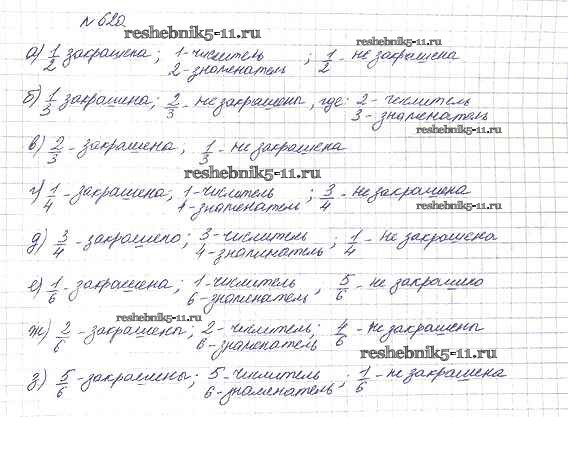 № 620
reshebnik5-11.ru
а) 1/2 закрашена; 1-числитель ; 1/2 - не закрашена
2-знаменатель
reshebnik5-11.ru
б) 1/3 закрашена; 2/3 - не закрашены, где: 2 - числитель
3 - знаменатель
reshebnik5-11.ru
в) 2/3 - закрашена, 1/3 - не закрашена
reshebnik5-11.ru
г) 1/4 - закрашена; 1-числитель ; 3/4 - не закрашена
4-знаменатель
reshebnik5-11.ru
д) 3/4 - закрашено; 3-числитель ; 1/4 - не закрашена
4-знаменатель
е) 1/6 - закрашена; 1-числитель , 5/6 - не закрашено
6-знаменатель
reshebnik5-11.ru
ж) 2/6 - закрашены; 2 - числитель; 4/6 - не закрашены
6-знаменатель
reshebnik5-11.ru
з) 5/6 - закрашены; 5 - числитель ; 1/6 - не закрашена
6-знаменатель